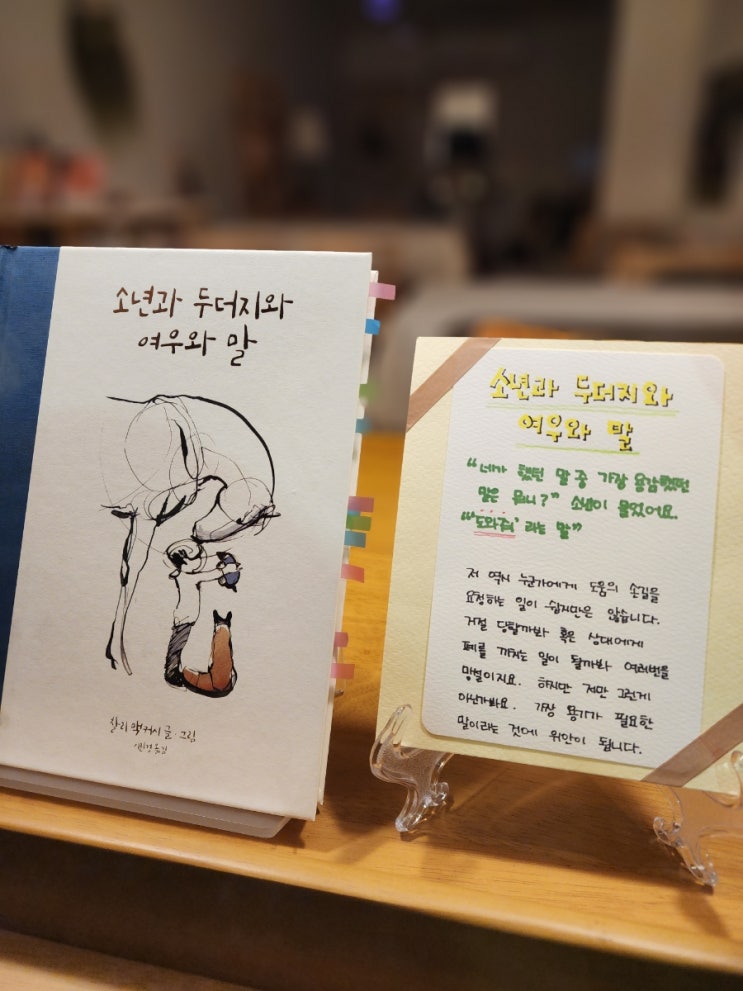 소년과 두더지와
여우와 말
찰리 맥커시 글·그림
소년과 두더지와
여우와 말
“네가 했던 말 중 가장 용감했던
말은 뭐니?” 소년이 물었어요.
“‘도와줘’ 라는 말”
저 역시 누군가에게 도움의 손길을
요청하는 일이 쉽지만은 않습니다.
거절 당할까봐 혹은 상대에게
폐를 끼치는 일이 될까봐 여러번을
망설이지요. 하지만 저만 그런게
아닌가봐요. 가장 용기가 필요한
말이라는 것에 위안이 됩니다.